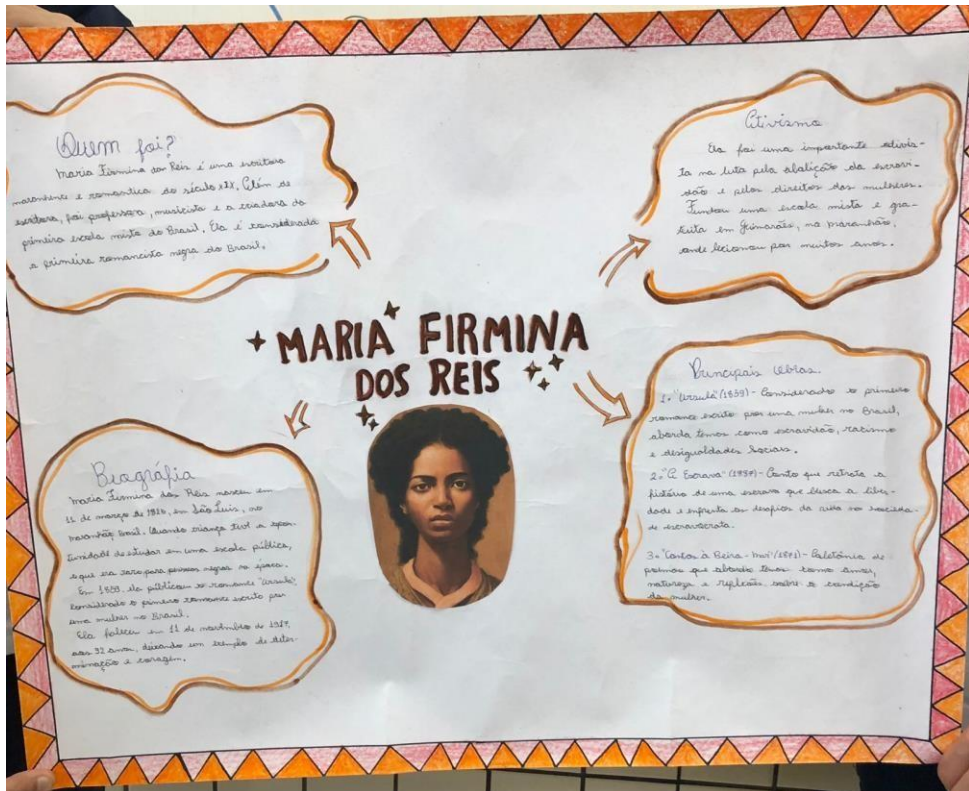 Quem foi?
Maria Firmina dos Reis é uma escritora
maranhense e romantica do século XIX. Além de
escritora, foi professora, musicista e a criadora da
primeira escola mista do Brasil. Ela é considerada
a primeira romancista negra do Brasil.
Ativismo
Ela foi uma importante ativis-
ta na luta pela abolição da escravi-
dão e pelos direitos das mulheres.
Fundou uma escola mista e gra-
tuita em Guimarães, no maranhão,
onde lecionou por muitos anos.
MARIA FIRMINA
DOS REIS
Biográfia
Maria Firmina dos Reis nasceu em
11 de março de, em São Luís, no
maranhão, Brasil. Quando criança teve a opor-
tunidade de estudar em uma escola pública,
o que era raro para pessoas negras na época.
Em 1859, ela publicou o romance "Ursula",
considerado o primeiro romance escrito por
uma mulher no Brasil.
Ela faleceu em 11 de novembro de,
aos 92 anos, deixando um exemplo de deter-
minação e coragem.
Principais obras.
1. "Ursula" (1859) - Considerado o primeiro
romance escrito por uma mulher no Brasil,
aborda temas como escravidão, racismo
e desigualdades sociais.
2. "A Escrava" - Conto que retrata a
história de uma escrava que busca a liber-
dade e enfrenta os desafios da vida na socieda-
de escravocrata.
3. "Cantos à Beira-mar" - Coletânia de
poemas que aborda temas como amor,
natureza e reflexões sobre a condição
da mulher.